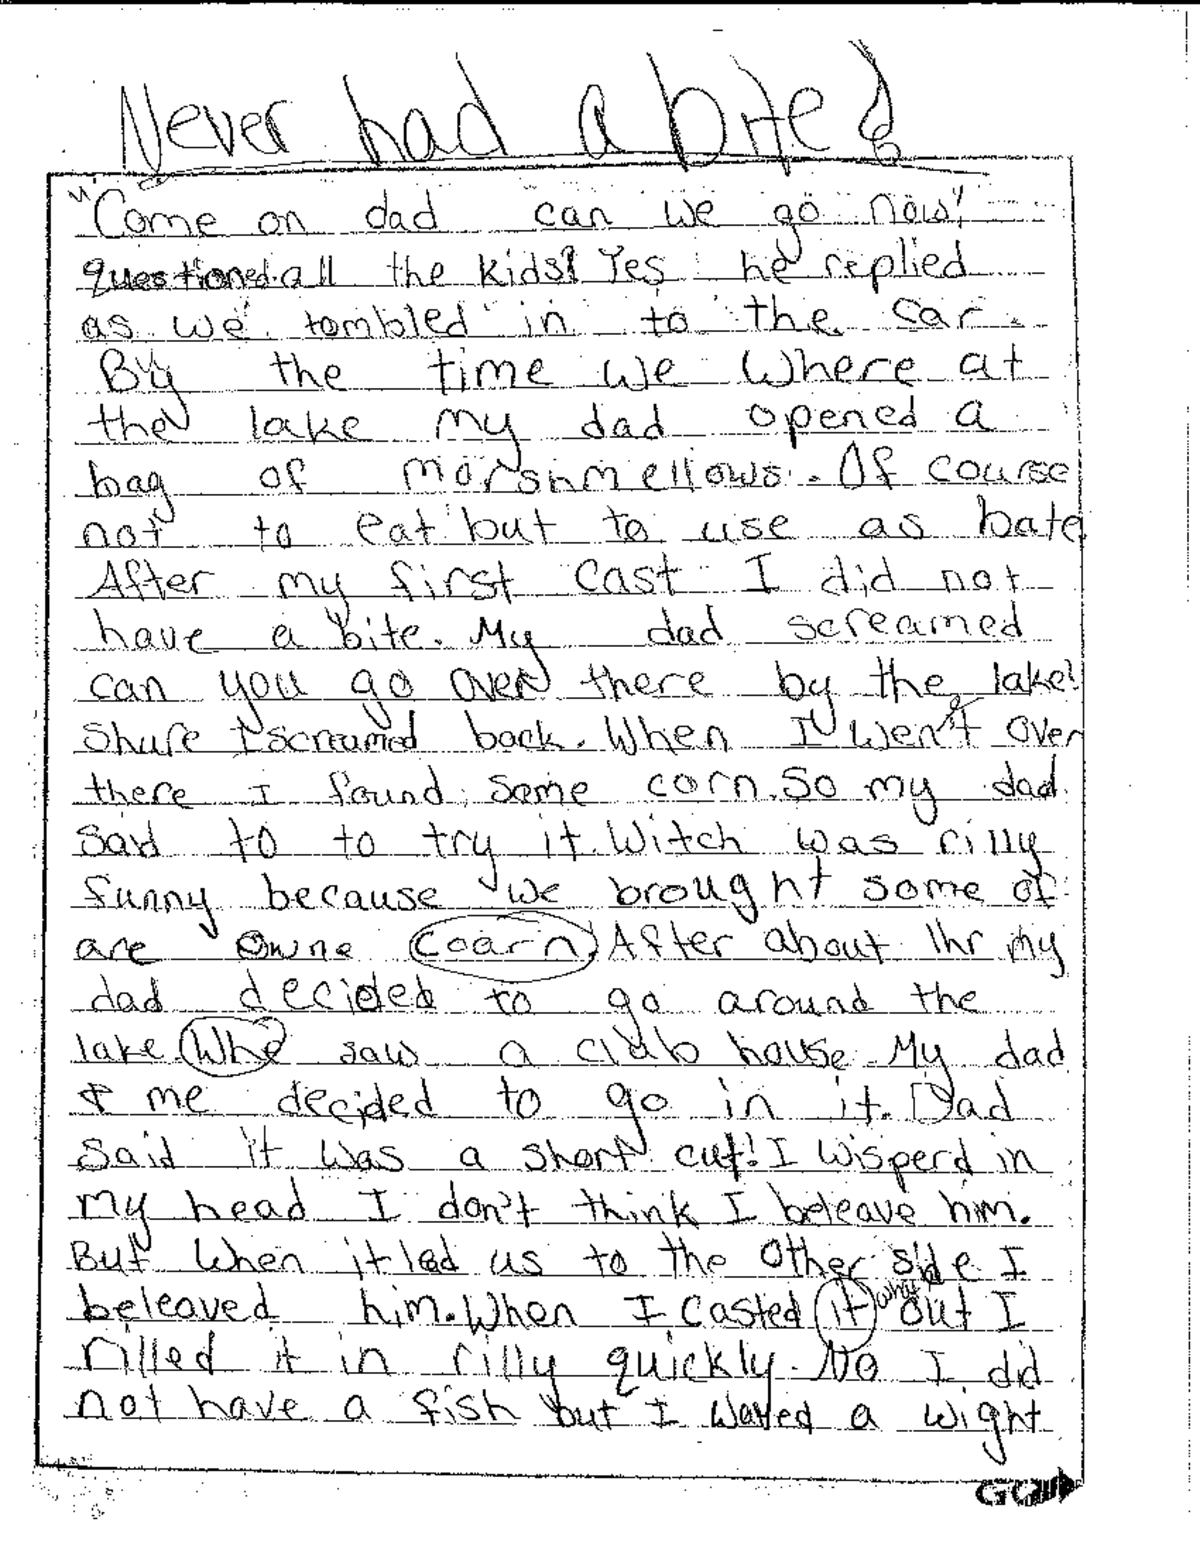 Never had a bite!
"Come on dad can we go now"
questioned all the kids? Yes he replied
as we tombled in to the car.
By the time we where at
the lake my dad opened a
bag of morshmellows. Of course
not to eat but to use as bate
After my first cast I did not
have a bite. My dad screamed
can you go over there by the lake!
Shure I screamed back. When I went over
there I found some corn. So my dad
said to to try it. Witch was rilly
funny because we brought some of
are owne coarn. After about 1hr my
dad decided to go around the
lake Whe saw a club house. My dad
& me decided to go in it. Dad
said it was a short cut! I wisperd in
my head I don't think I beleave him.
But when it led us to the other side I
beleaved him. When I casted it out I
rilled it in rilly quickly. No I did
not have a fish but I a wight
GO